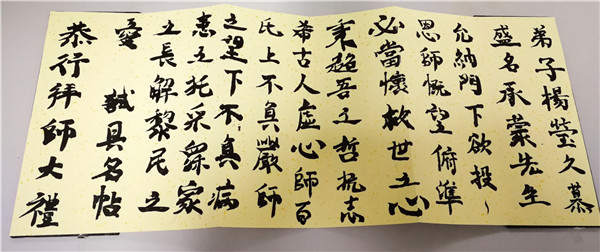 弟子楊瑩久慕
盛名承蒙先生
允納門下欲投
恩師慨望俯準
必當懷救世之心
秉超吾之哲抗志
希古人虛心師百
氏上不負嚴師
之望下不負病
患之托采衆家
之長解黎民之
憂 具名帖
恭行拜師大禮